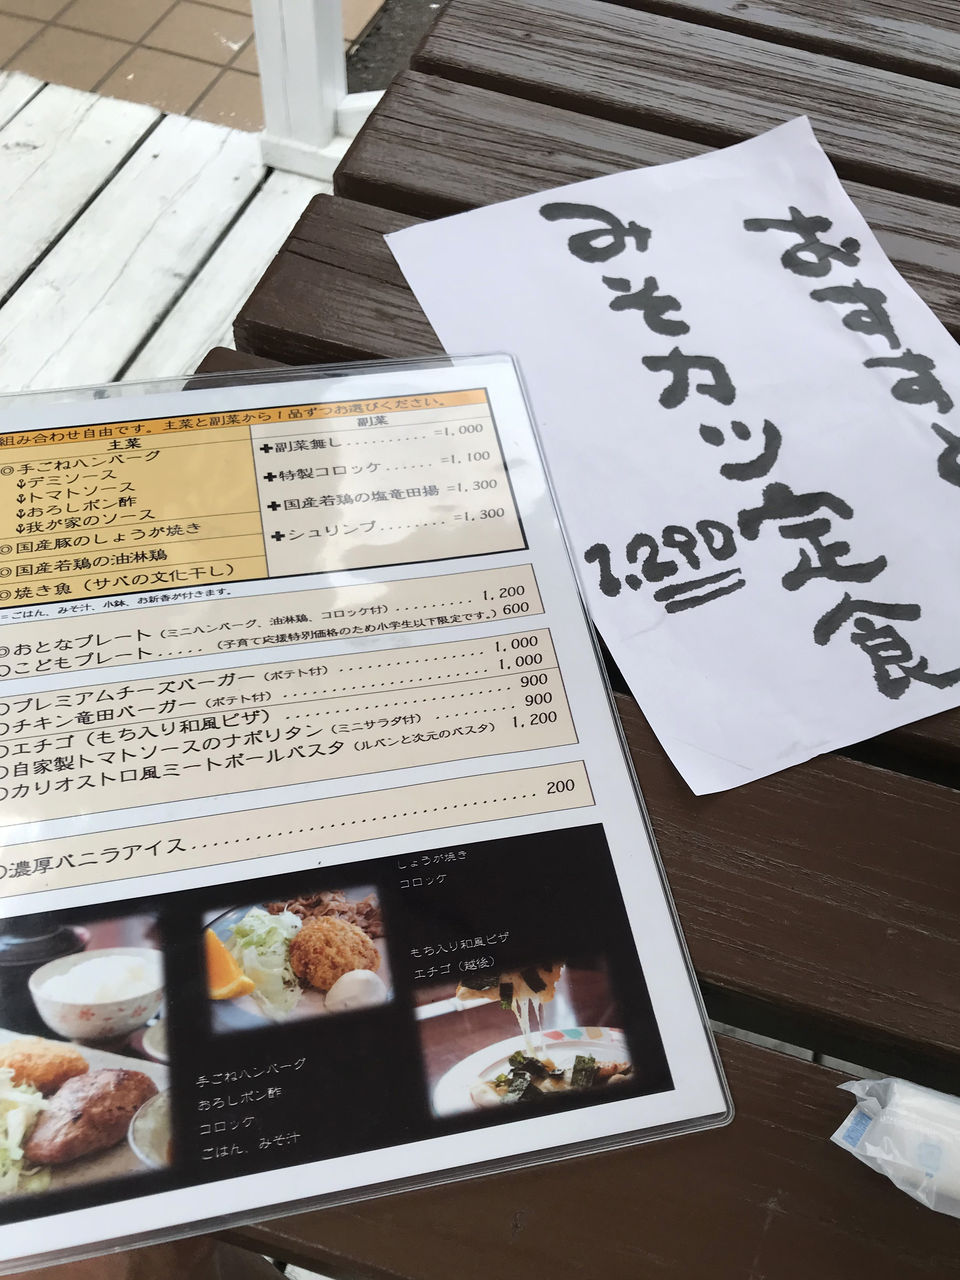 組み合わせ自由です。主菜と副菜から1品ずつお選びください。
主菜
◎手ごねハンバーグ
デミソース
トマトソース
おろしポン酢
我が家のソース
◎国産豚のしょうが焼き
◎国産若鶏の油淋鶏
◎焼き魚（サバの文化干し）
副菜
✚副菜無し.......... =1,000
✚特製コロッケ...... =1,100
✚国産若鶏の塩竜田揚 =1,300
✚シュリンプ........ =1,300
=ごはん、みそ汁、小鉢、お新香が付きます。
◎おとなプレート（ミニハンバーグ、油淋鶏、コロッケ付）.......... 1,200
○こどもプレート.....（子育て応援特別価格のため小学生以下限定です。）600
○プレミアムチーズバーガー（ポテト付）.................. 1,000
○チキン竜田バーガー（ポテト付）.................. 1,000
○エチゴ（もち入り和風ピザ）.................. 900
○自家製トマトソースのナポリタン（ミニサラダ付）........ 900
○カリオストロ風ミートボールパスタ（ルパンと次元のパスタ）1,200
濃厚バニラアイス.................. 200
しょうが焼き
コロッケ
もち入り和風ピザ
エチゴ（越後）
手ごねハンバーグ
おろしポン酢
コロッケ
ごはん、みそ汁
おすすめ
みそカツ定食
1,290